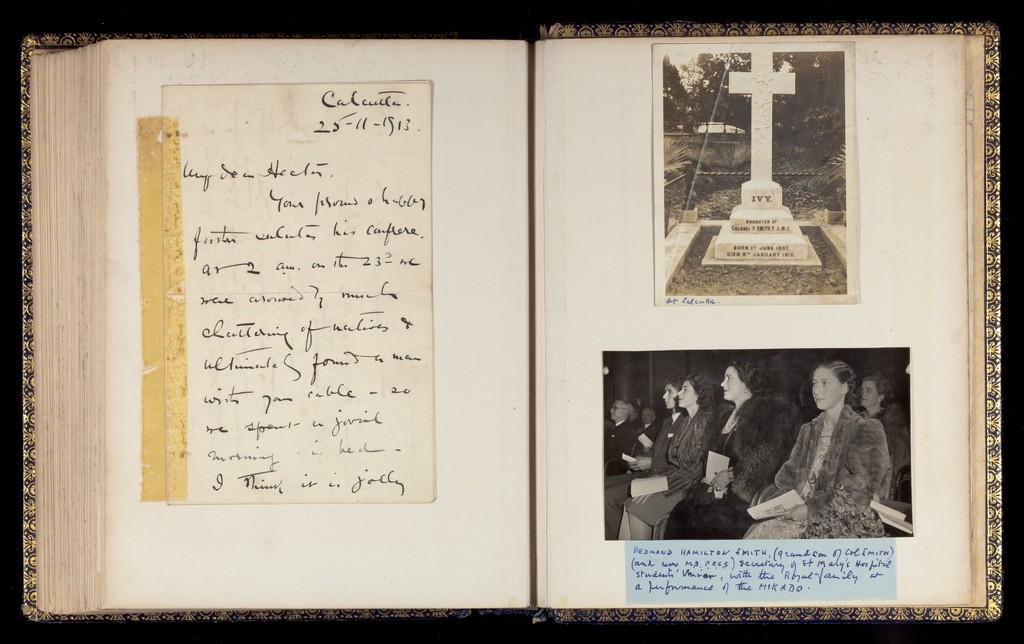 Calcutta.
25-11-1913.
My dear Hector.
Your proud & happy
foster salutes his confrere.
At 2 am. on the 23rd we
were aroused by much
chattering of natives &
ultimately found a man
with your cable - so
we spent a jovial
morning - in bed -
I think it is jolly
IVY.
DAUGHTER OF
COLONEL F. SMITH
BORN 1st JUNE
DIED 8th JANUARY
at Calcutta.
REDMOND HAMILTON SMITH, (grandson of Col SMITH)
(and now M.B. F.R.C.S) Secretary of St Mary's Hospital
Students' Union, with the Royal family at
a performance of the MIKADO.